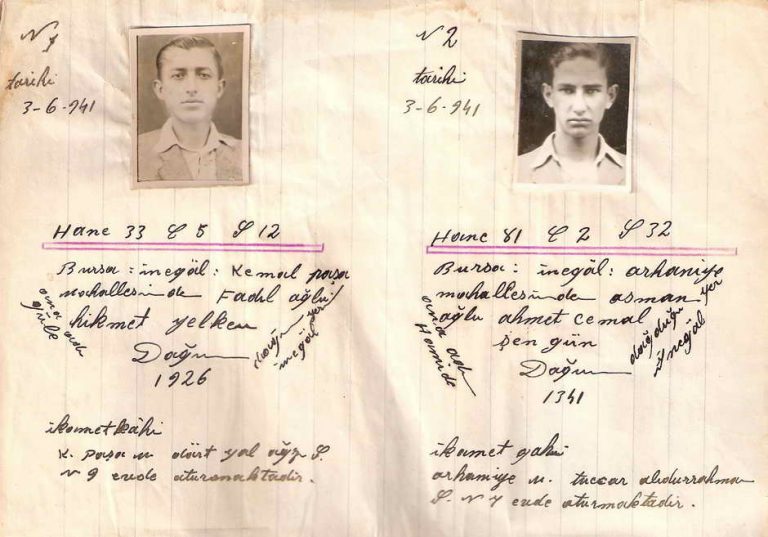 N 1
tarihi
3-6-941
Hane 33 C 5 S 12
Bursa: inegöl: Kemal paşa
mahallesinde Fadıl oğlu
hikmet yelken
Doğum
1926
ana adı
doğum yer
inegöl
ikametkâhi
K. paşa M. dört yol ağzı S.
N 9 evde oturmaktadir.
N 2
tarihi
3-6-941
Hane 81 C 2 S 32
Bursa: inegöl: orhaniye
mahallesinde osman
oğlu ahmet cemal
şen gün
Doğum
1341
ana adı
Hamide
doğduğu yer
İnegöl
ikamet gahi
orhaniye M. tuccar abdurrahman
S. N 4 evde oturmaktadir.